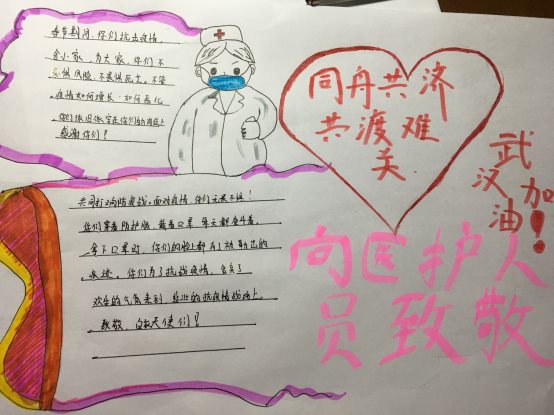 春节期间，你们抗击疫情，
舍小家，为大家，你们不
畏惧风险，不畏惧死亡。不管
疫情如何增长，如何恶化，
你们依旧依守在你们的岗位上
感谢你们？
同舟共济
共渡难
关
武
汉加
油！
共同打响防疫战，面对疫情，你们无畏不惧！
你们穿着防护服，戴着口罩，每天都奋斗着，
拿下口罩时，你们的脸上都有了被勒出的
痕迹，你们为了抗战疫情，舍去了
欢乐的气氛来到
抗疫情战场上。
致敬，白衣天使们？
向医护人
员致敬